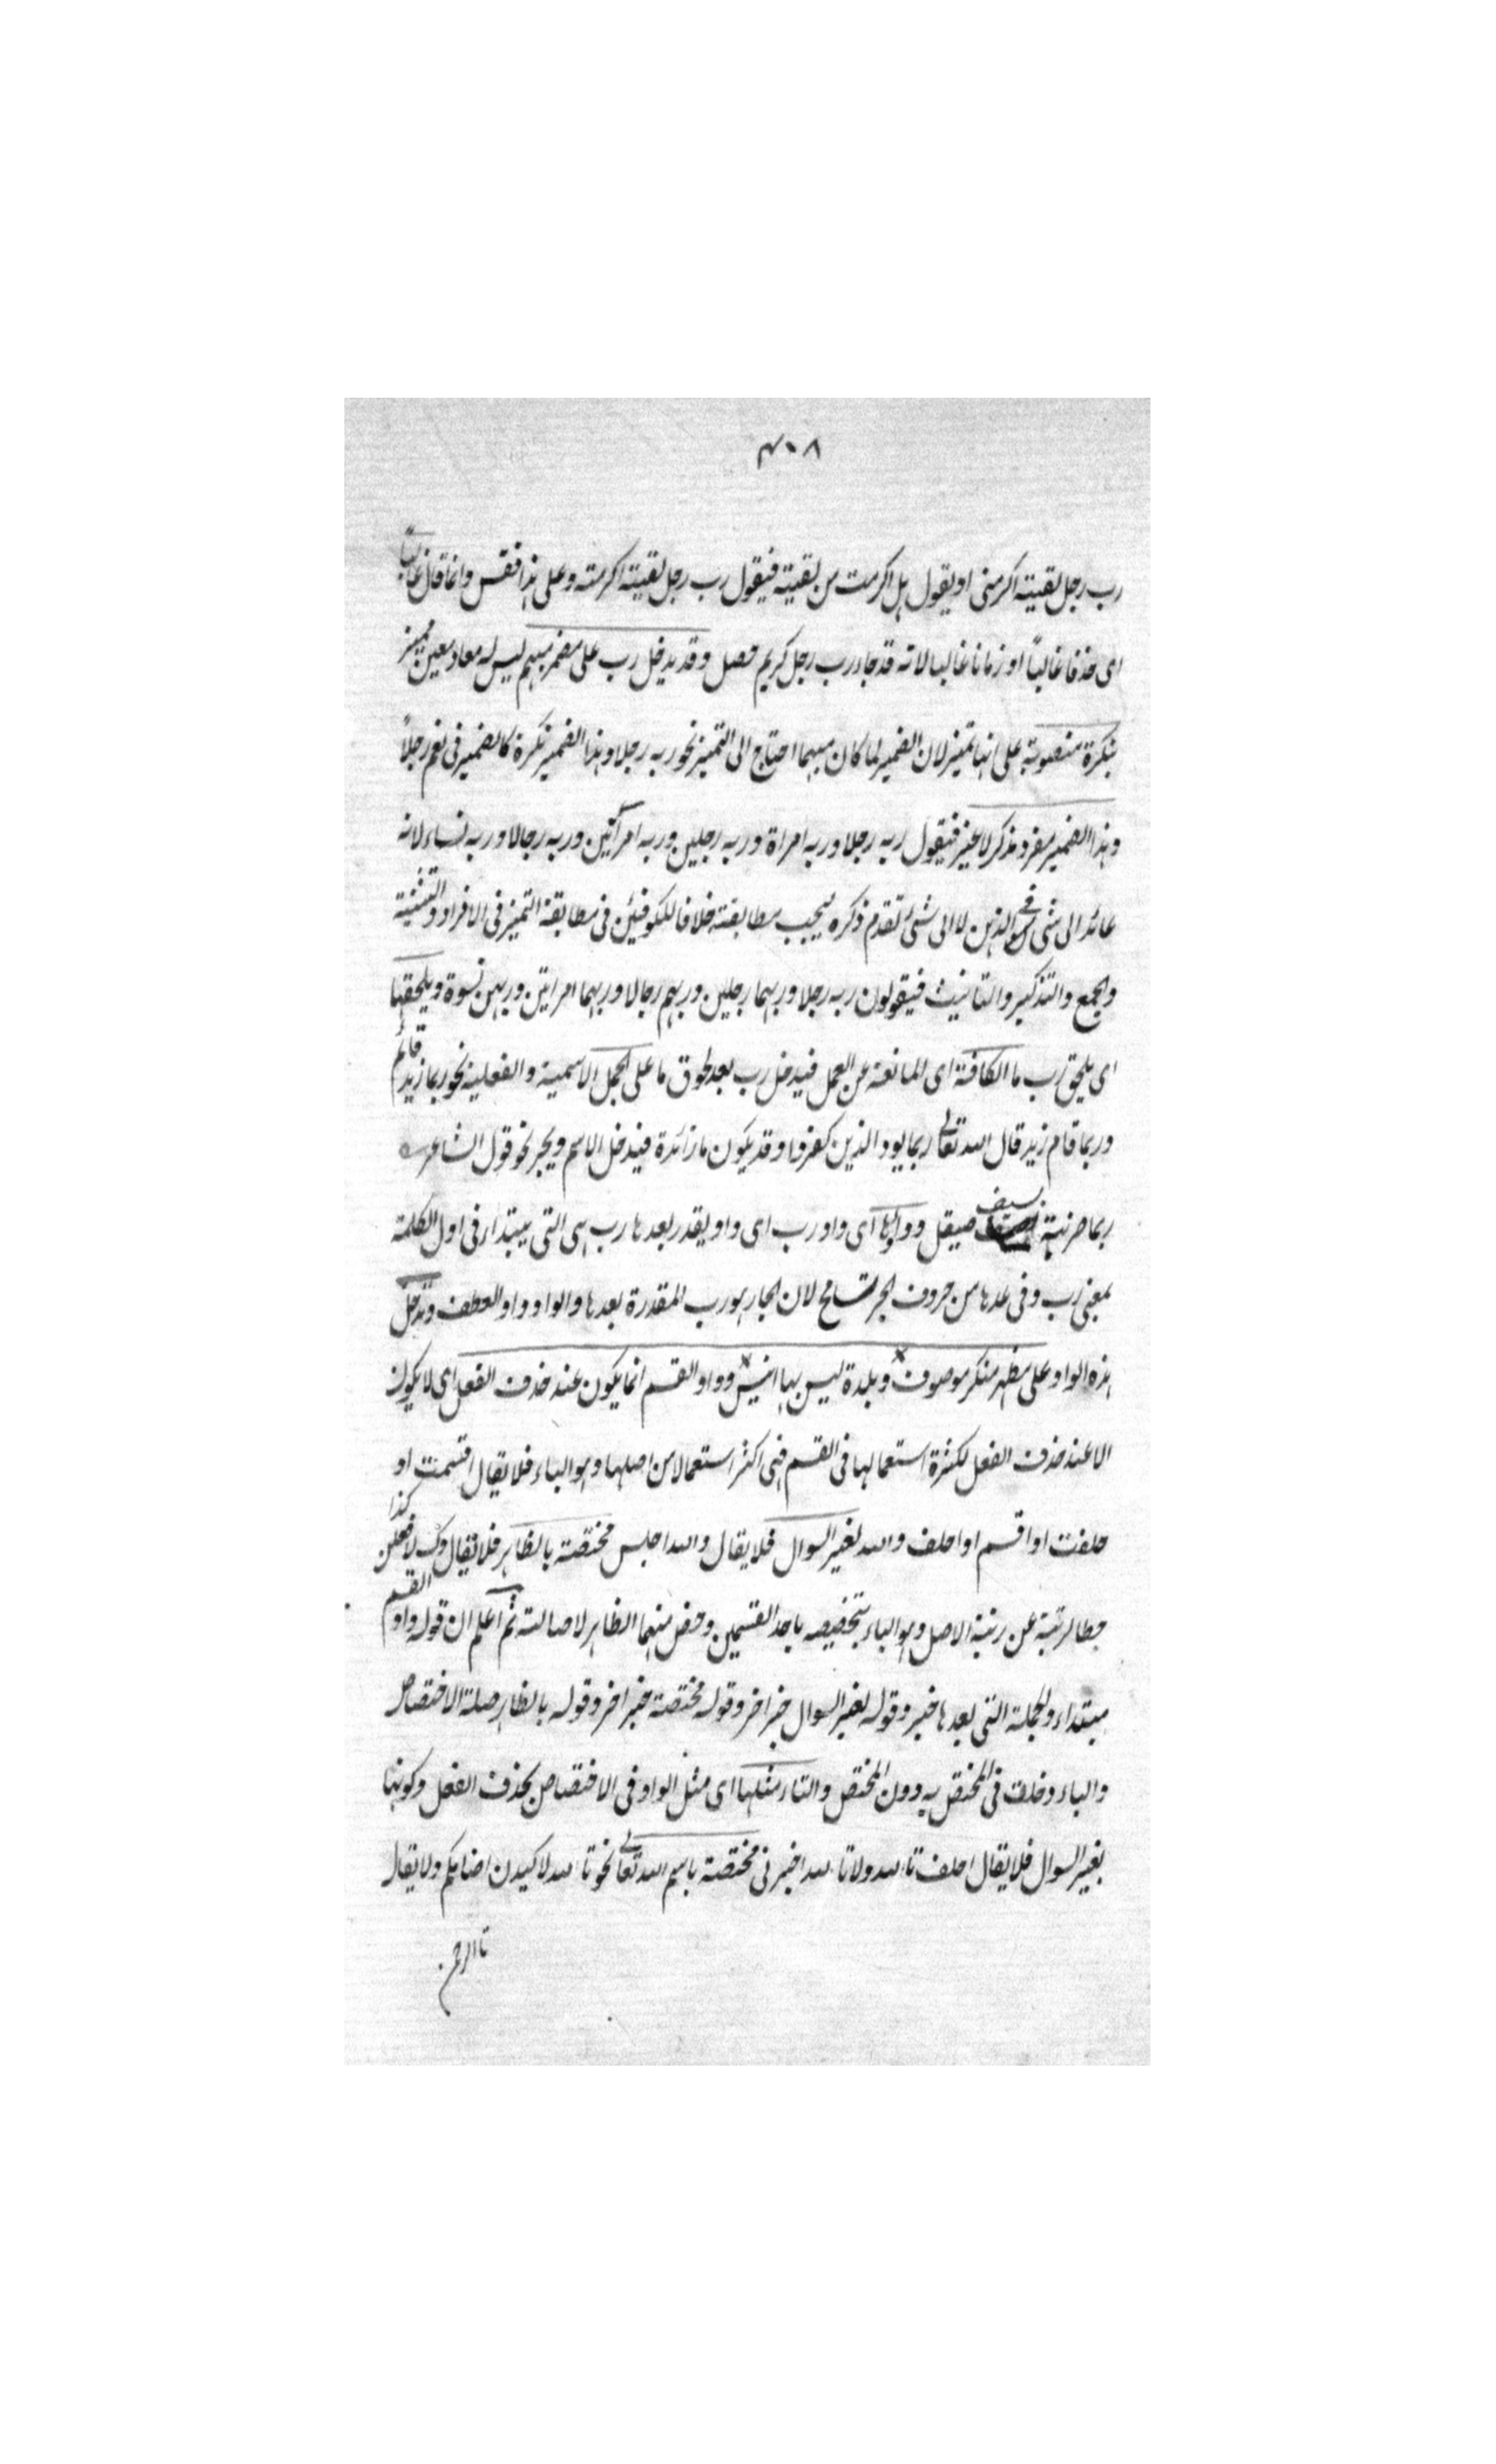 ٤٠٨
رب رجل لقيته اكرمنى او يقول هل اكرمت من لقيته فيقول رب رجل لقيته اكرمته وعلى هذا فقس وانما قال غالبًا
اى حذفا غالبًا او زمانا غالبا لانه قد جاء رب رجل كريم حصل وقد يدخل رب على مضمر مبهم ليس له معاد معين مميز
بنكرة منصوبة على انها تميز لان الضمير لما كان مبهما احتاج الى التميز نحو ربه رجلا وهذا الضمير نكرة كالضمير فى نعم رجلاً
وهذا الضمير مفرد مذكر لا غير فيقول ربه رجلا وربه امراة وربه رجلين وربه امرأتين وربه رجالا وربه نساء لانه
عائد الى شى فى الذهن لا الى شئ تقدم ذكره فيجب مطابقته خلافا للكوفيين فى مطابقة التميز فى الافراد والتثنية
والجمع والتذكير والتانيث فيقولون ربه رجلا وربهما رجلين وربهم رجالا وربهما امراتين وربهن نسوة ويلحقها
اى يلحق رب ما الكافة اى المانعة عن العمل فيدخل رب بعد لحوق ما على الجمل الاسمية والفعلية نحو ربما زيد قائم
وربما قام زيد قال الله تعالى ربما يود الذين كفروا وقد يكون ما زائدة فيدخل الاسم ويجر نحو قول الشاعر
ربما ضربة بسيف صيقل وواوها اى واو رب اى واو يقدر بعدها رب هى التى يبتدأ فى اول الكلمة
بمعنى رب وفى عدها من حروف الجر تسامح لان الجار هو رب المقدرة بعدها والواو واو العطف وتدخل
هذه الواو على مظهر منكر موصوف وبلدة ليس بها انيس وواو القسم انما يكون عند حذف الفعل اى لا يكون
الا عند حذف الفعل لكثرة استعمالها فى القسم فهى اكثر استعمالا من اصلها وهو الباء فلا يقال اقسمت او
حلفت او اقسم او احلف والله لغير السوال فلا يقال والله اجلس مختصة بالظاهر فلا يقال وك لافعلن كذا
حطا لرتبة عن رتبة الاصل وهو الباء بتخصيصه باحد القسمين وخص منهما الظاهر لاصالته ثم اعلم ان قوله واو القسم
مبتداء والجملة التى بعدها خبر وقوله لغير السوال خبر اخر وقوله مختصة خبر اخر وقوله بالظاهر صلة الاختصاص
والباء دخلت فى المختص به دون المختص والتاء مثلها اى مثل الواو فى الاختصاص بحذف الفعل وكونها
لغير السوال فلا يقال احلف تالله ولا تالله اخبرنى مختصة باسم الله تعالى نحو تالله لاكيدن اصنامكم ولا يقال
تالرحمن